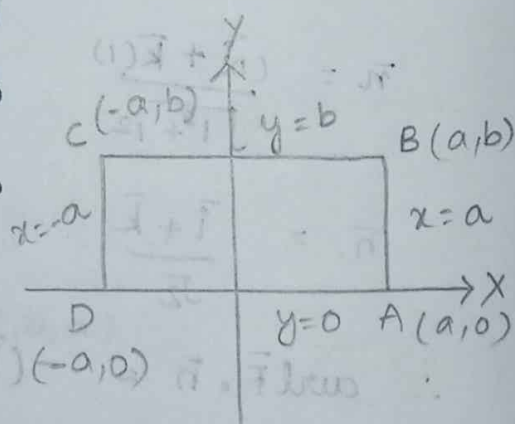 Y
C (-a,b)
y=b
B (a,b)
x=-a
x=a
X
D
y=0
A (a,0)
(-a,0)